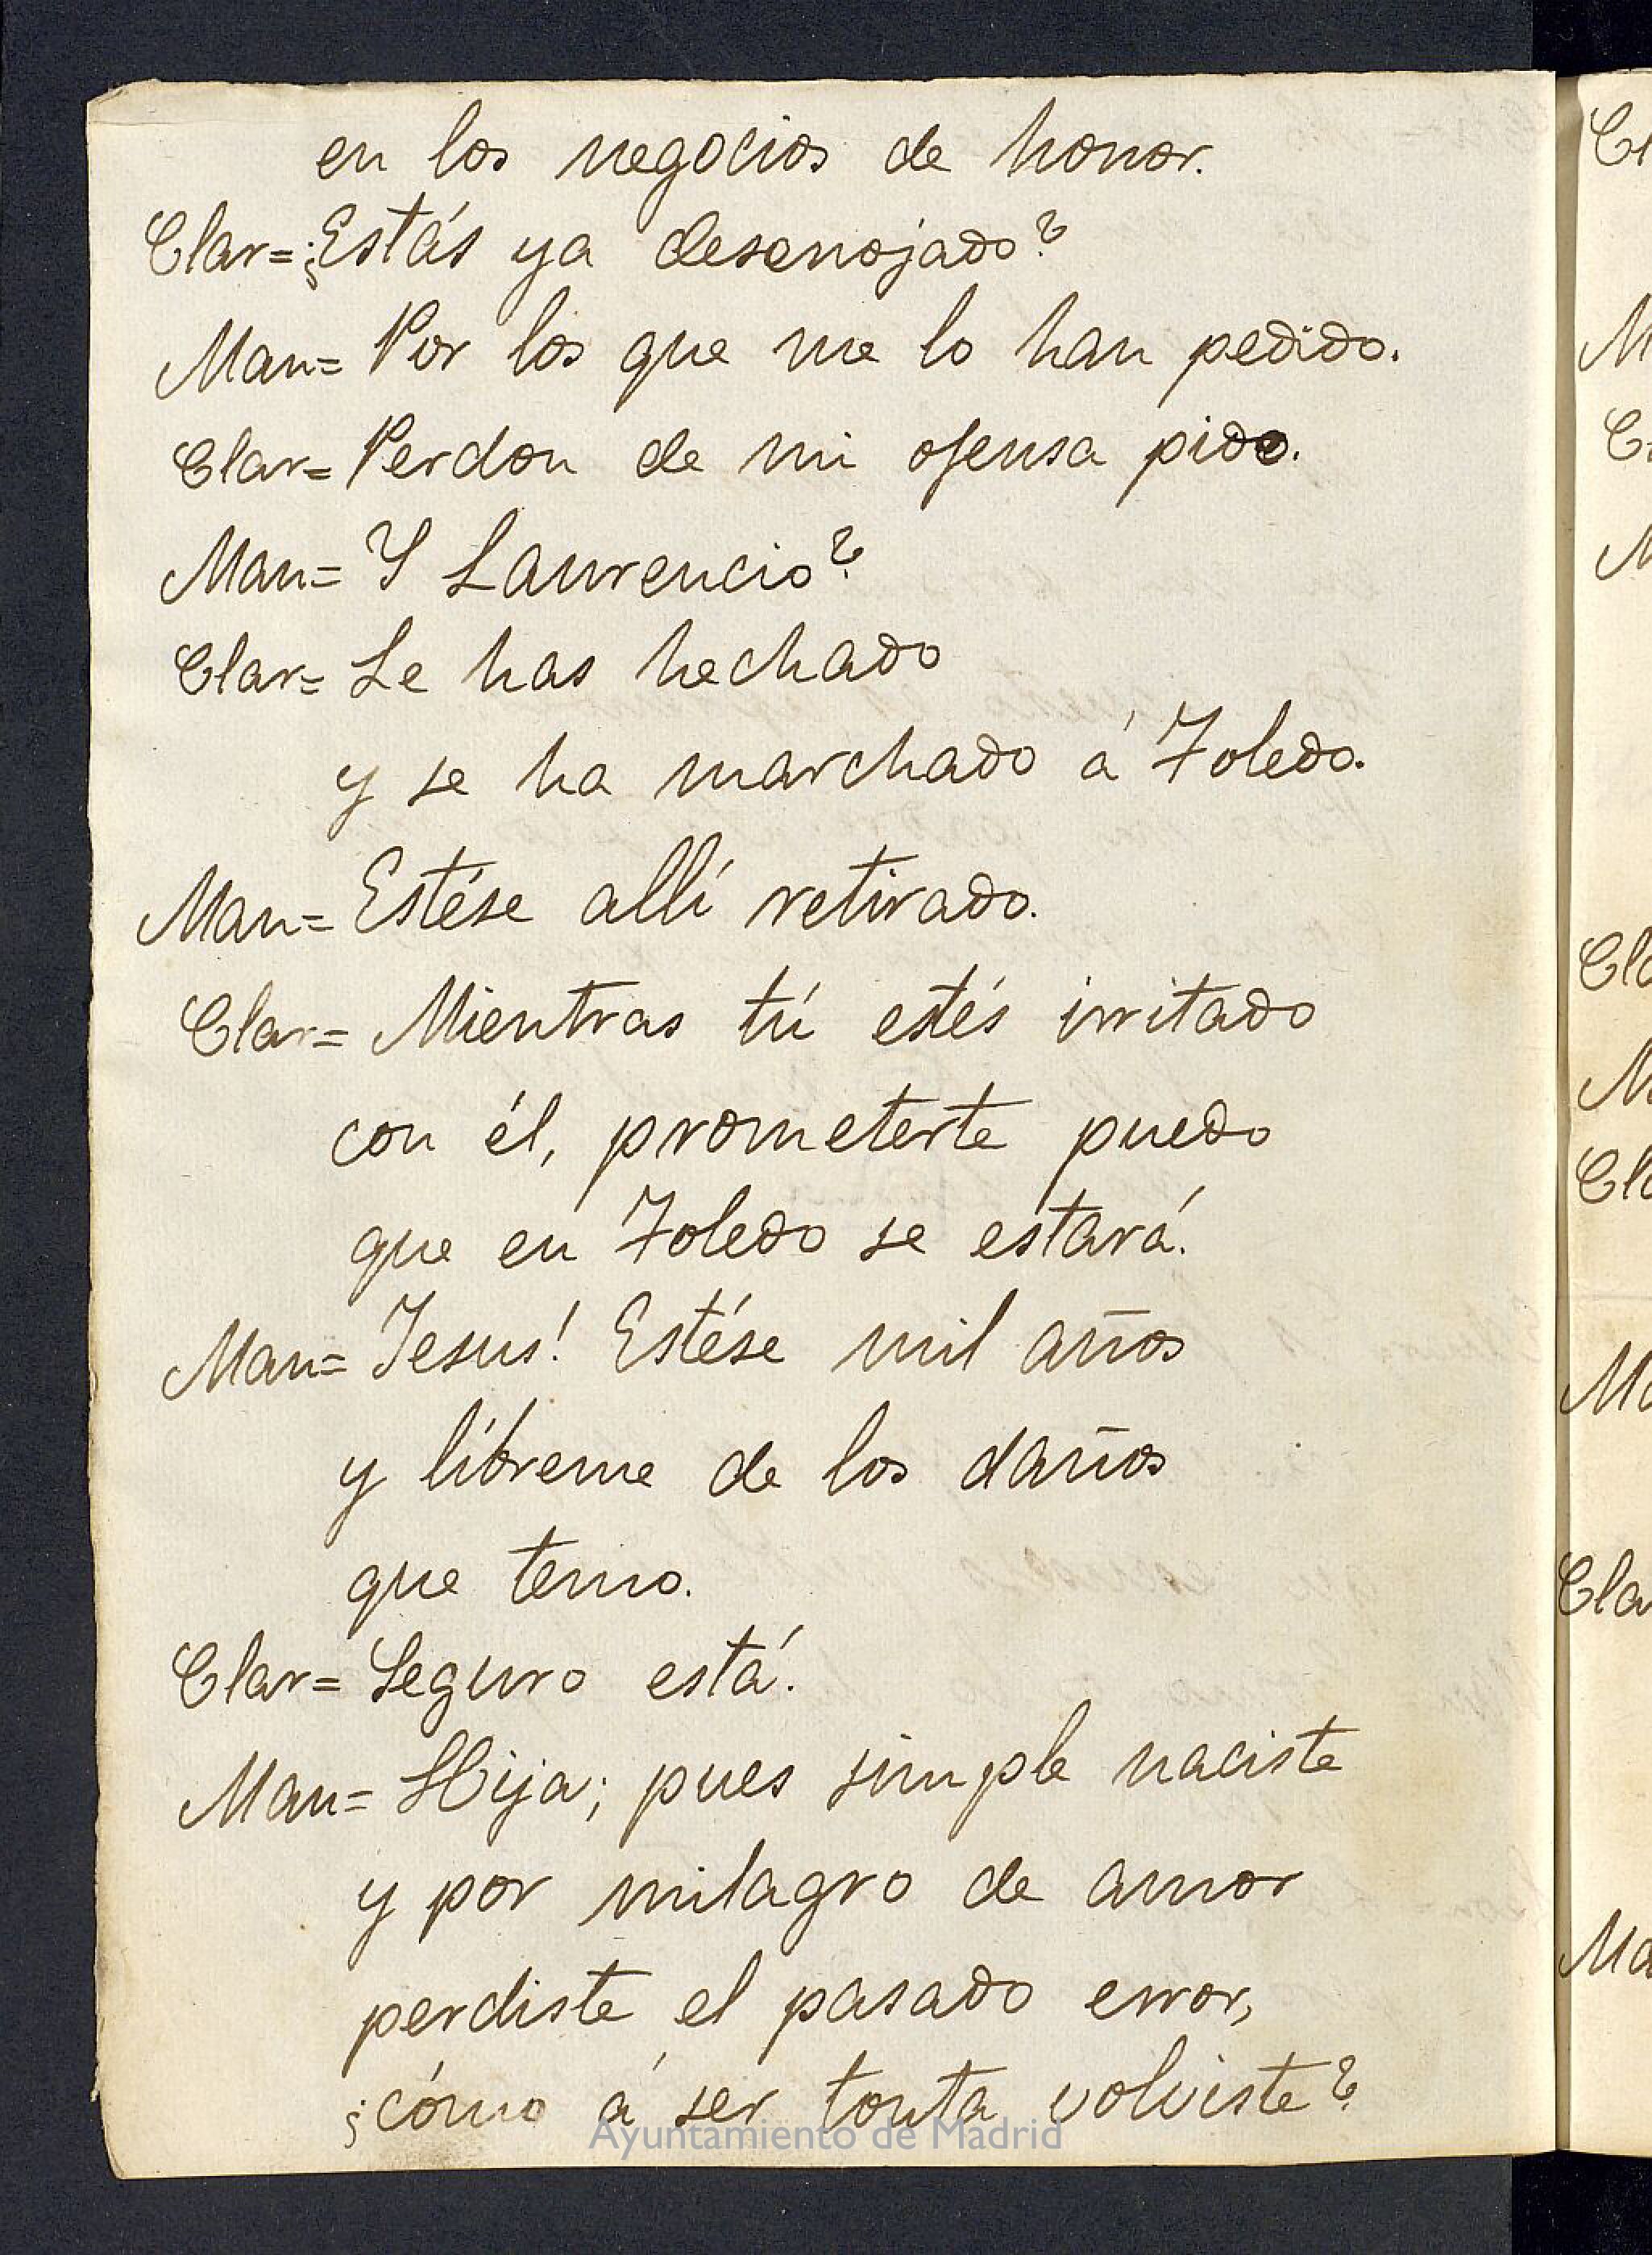 en los negocios de honor.
Clar= ¿Estás ya desenojado?
Man= Por los que me lo han pedido.
Clar= Perdon de mi ofensa pido.
Man= Y Laurencio?
Clar= Le has hechado
y se ha marchado á Toledo.
Man= Estése allí retirado.
Clar= Mientras tú estés irritado
con él, prometerte puedo
que en Toledo se estará.
Man= Jesus! Estése mil años
y líbreme de los daños
que temo.
Clar= Seguro está.
Man= Hija; pues simple naciste
y por milagro de amor
perdiste el pasado error,
¿cómo á ser tonta volviste?
Ayuntamiento de Madrid